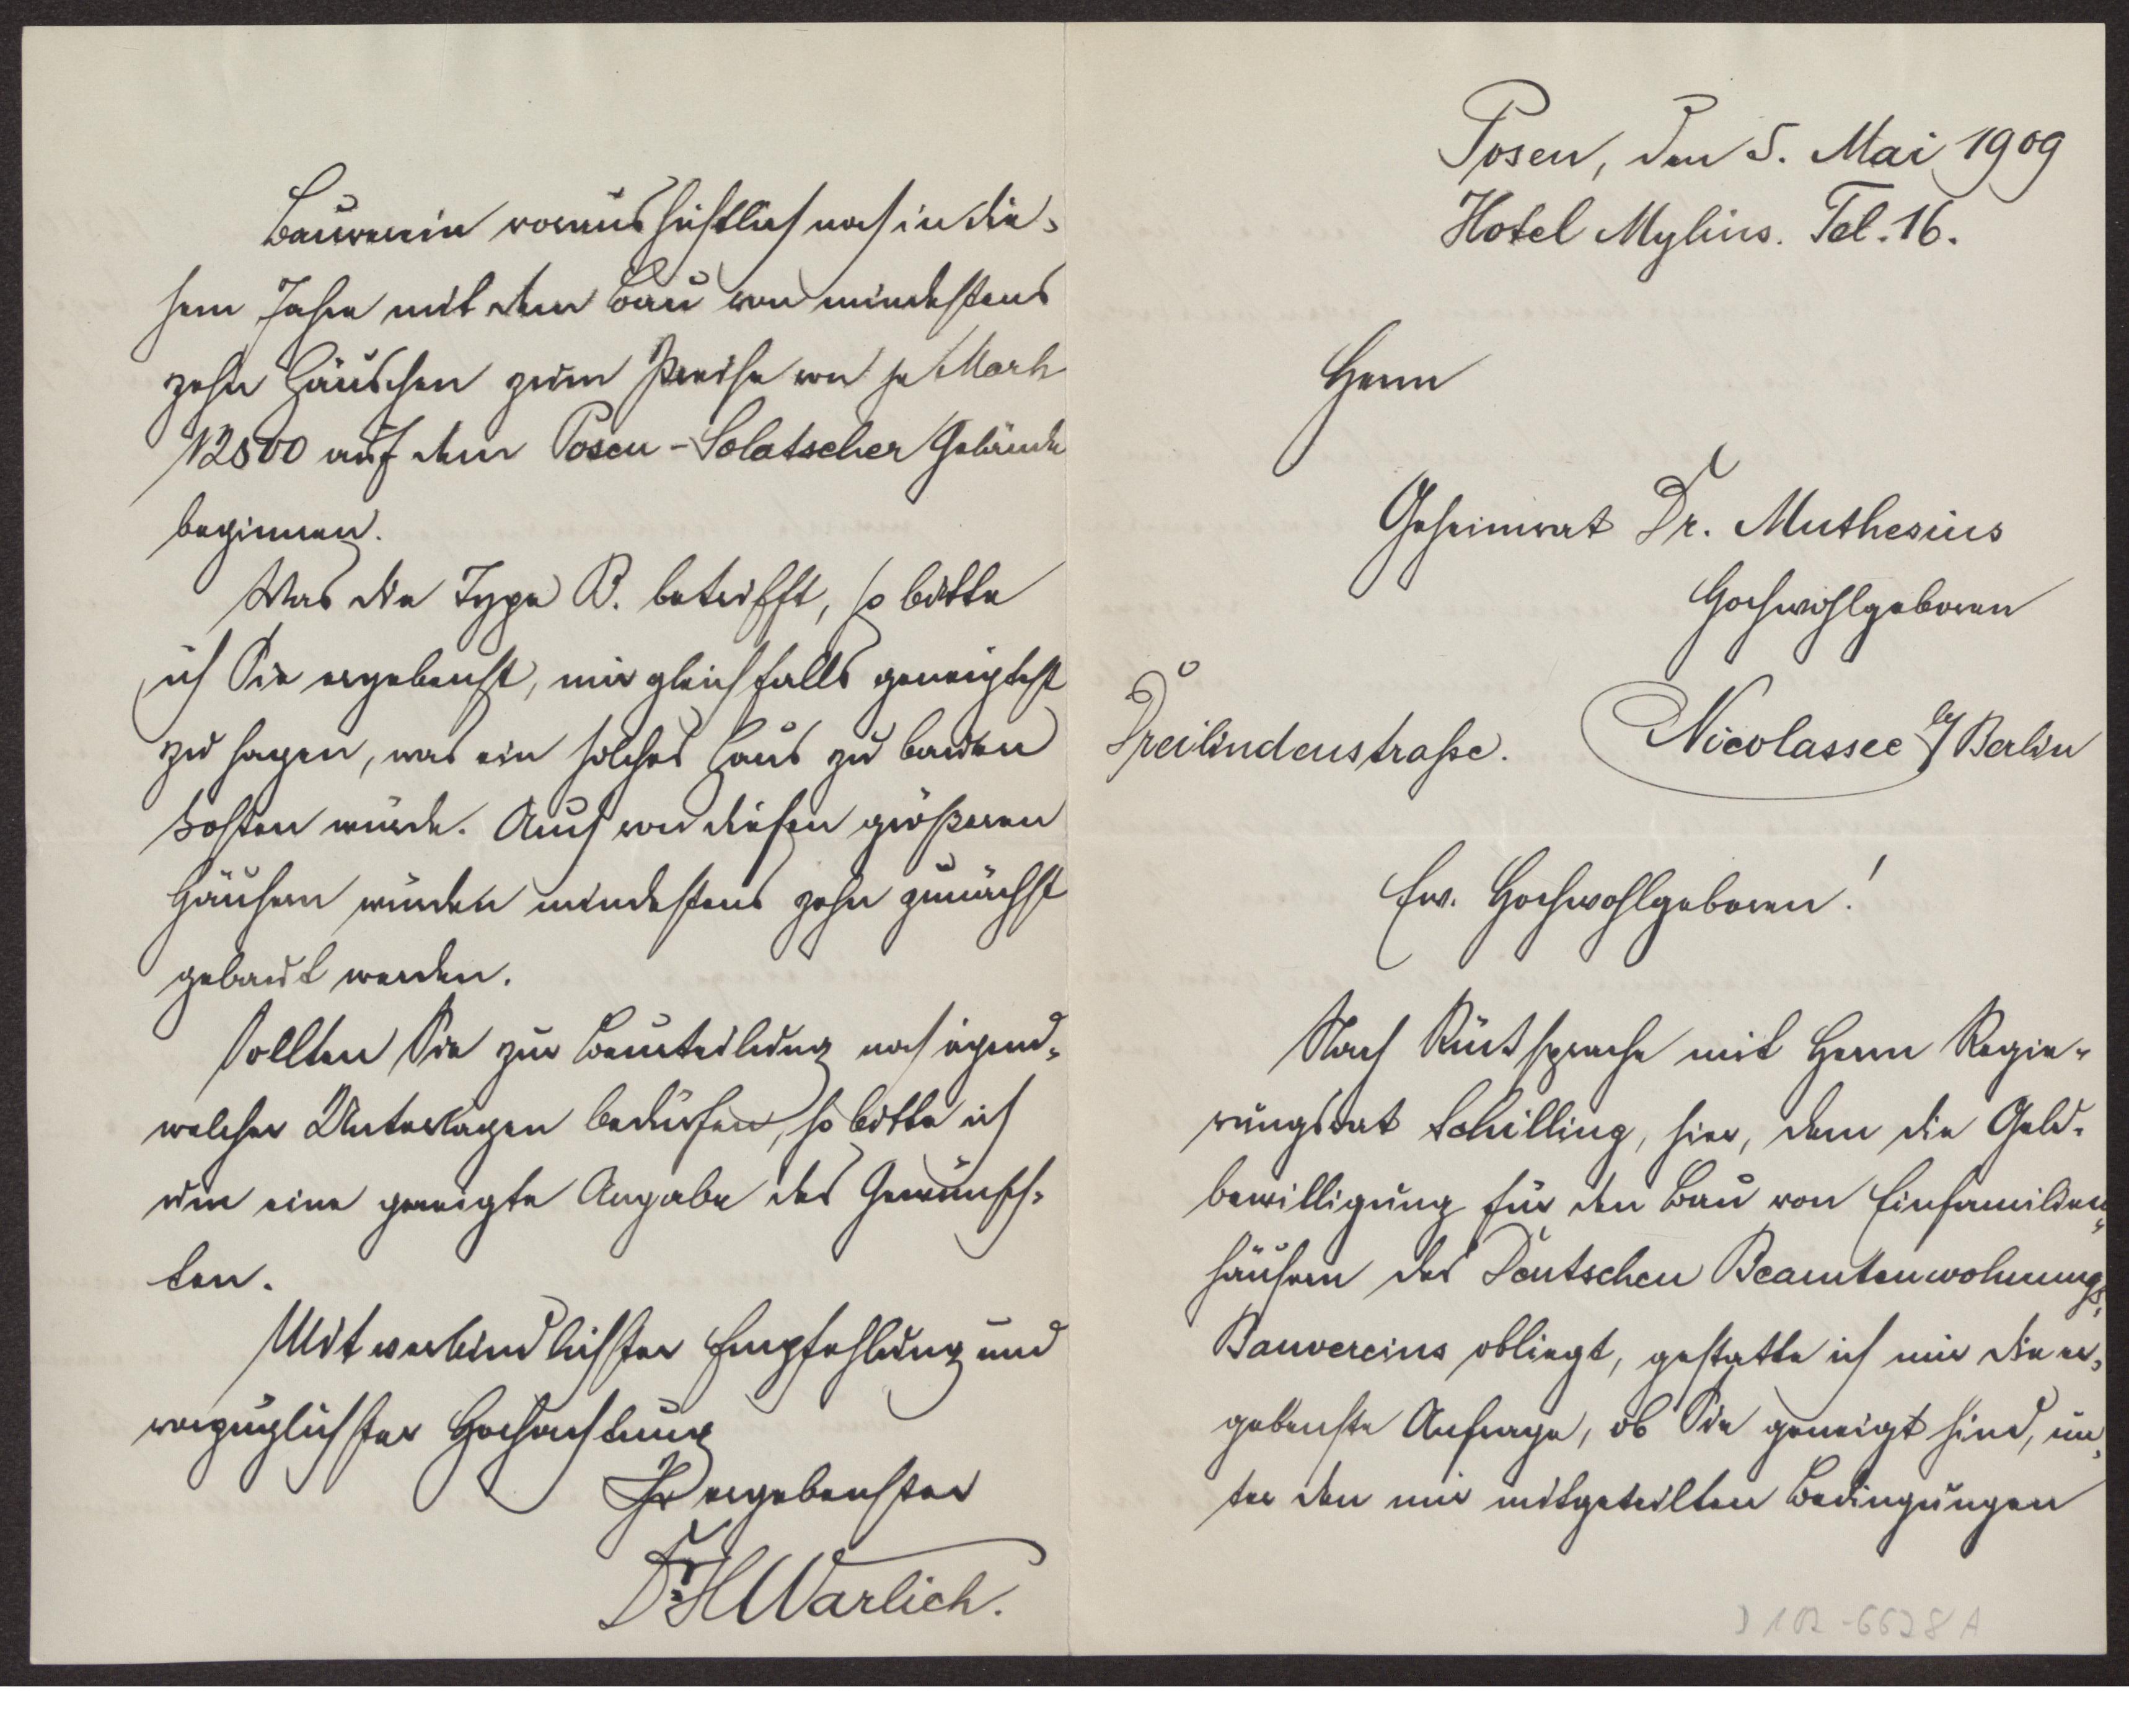 Posen, den 5. Mai 1909
Hotel Mylius. Tel. 16.
Herrn
Geheimrat Dr. Muthesius
Hochwohlgeboren
Dreilindenstraße. Nicolassee b/ Berlin
Ew. Hochwohlgeboren!
Nach Rücksprache mit Herrn Regie-
rungsrat Schilling, hier, dem die Geld-
bewilligung für den Bau von Einfamilien-
häusern des Deutschen Beamtenwohnungs-
Bauvereins obliegt, gestatte ich mir die er-
gebenste Anfrage, ob Sie geneigt sind, un-
ter den mir mitgeteilten Bedingungen
D 102-6628 A
Bauverein voraussichtlich noch in die-
sem Jahre mit dem Bau von mindestens
zehn Häuschen zum Preise von je Mark
12500 auf dem Posen-Solatscher Gelände
beginnen.
Was die Type B. betrifft, so bitte
ich Sie ergebenst, mir gleichfalls geneigtest
zu sagen, was ein solches Haus zu bauen
kosten würde. Auch von diesen größeren
Häusern würden mindestens zehn zunächst
gebaut werden.
Sollten Sie zur Beurteilung noch irgend-
welcher Unterlagen bedürfen, so bitte ich
um eine geneigte Angabe des Gewünsch-
ten.
Mit verbindlichster Empfehlung und
vorzüglichster Hochachtung
Ihr ergebenster
Dr. H Warlich.